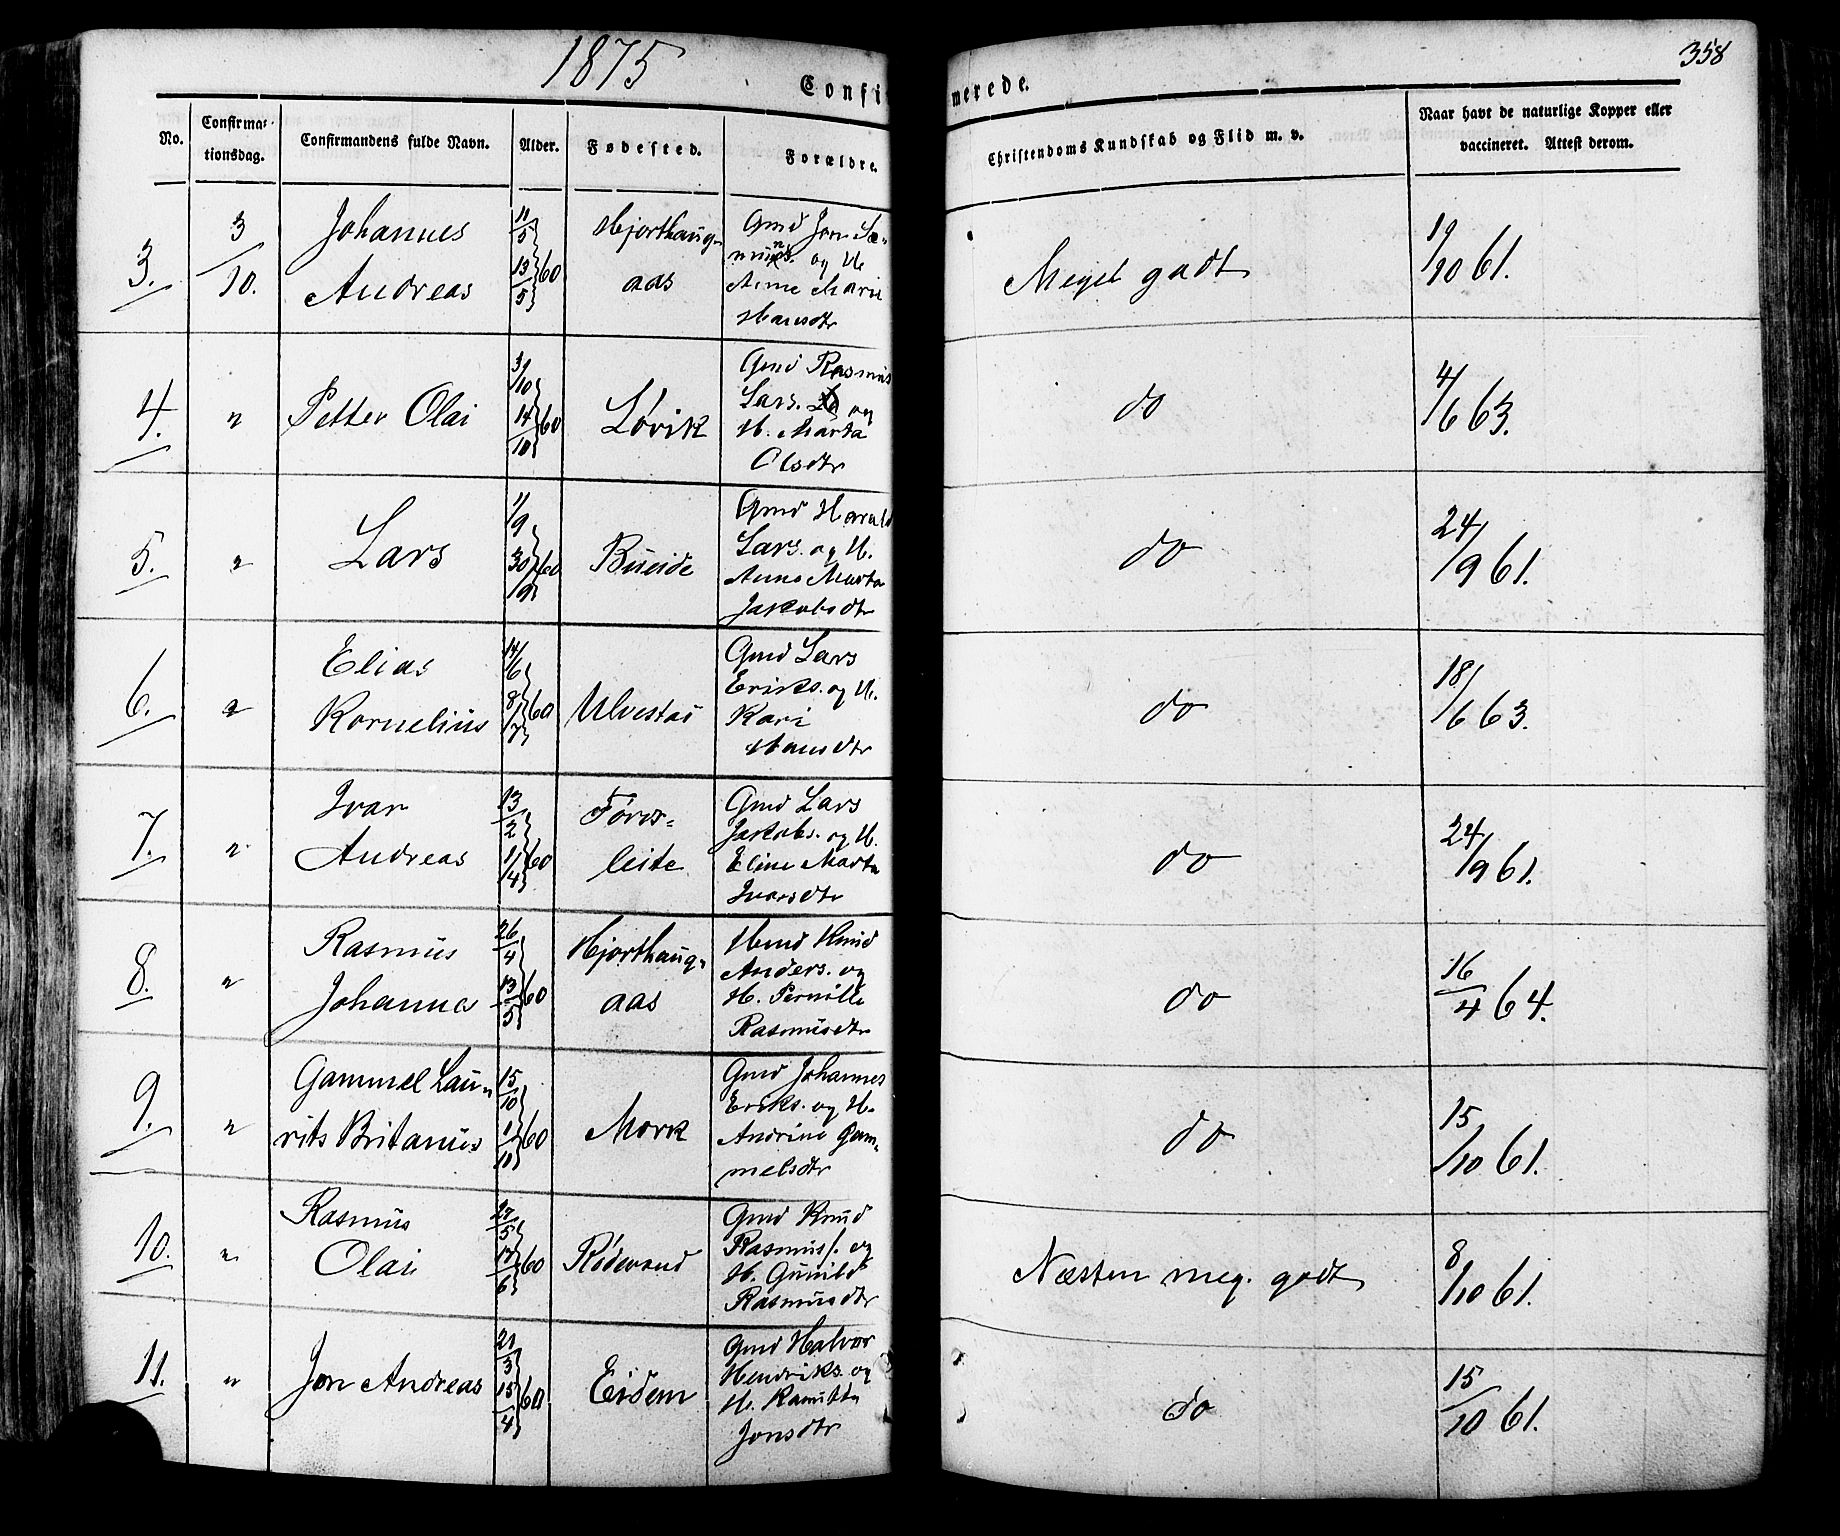 1875
358
Confir
merede.
No.
Confirma-
tionsdag.
Confirmandens fulde Navn.
Alder.
Fødested.
Forældre.
Christendoms Kundskab og Flid m. v.
Naar havt de naturlige Kopper eller
vaccineret. Attest derom.
3.
3/10.
Johannes
Andreas
11/5
13/5 60
Hjorthaug-
aas
Gmd Jon
og H.
Anne Marie
Hansdtr
Meget godt
19/10 61.
4.
"
Petter Olai
3/10
14/10 60
Løvik
Gmd Rasmus
Lars. og
H. Marta
Olsdtr
do
4/6 63.
5.
"
Lars
11/9
30/9 60
Bueide
Gmd Harald
Lars. og H.
Anne Marta
Jakobsdtr
do
24/9 61.
6.
"
Elias
Kornelius
14/6
8/7 60
Ulvestad
Gmd Lars
Eriks. og H.
Kari
Hansdtr
do
18/6 63.
7.
"
Ivar
Andreas
13/2
1/4 60
Føres-
leite
Gmd Lars
Jakobs. og H.
Eline Marta
Ivarsdtr
do
24/9 61.
8.
"
Rasmus
Johannes
26/4
13/5 60
Hjorthaug-
aas
Hmd Knud
Anders. og
H. Pernille
Rasmusdtr
do
16/4 64.
9.
"
Gammel Lau-
rits Britanus
15/10
60
Mork
Gmd Johannes
Eriks. og H.
Andrine Gam-
melsdtr
do
15/10 61.
10.
"
Rasmus
Olai
27/5
17/6 60
Rødesand
Gmd Knud
Rasmuss. og
H. Gunild
Rasmusdtr
Næsten meg. godt
8/10 61.
11.
"
Jon Andreas
21/3
15/4 60
Eidem
Gmd Halvor
Hendriks. og
H. Kanutta
Jonsdtr
do
15/10 61.